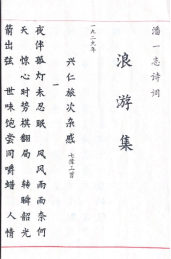 潘一志诗词
浪游集
一九二九年
兴仁旅次杂感 七律三首
一
夜伴孤灯未忍眠 风风雨雨奈何
天 惊心时势棋翻局 转瞬韶光
箭出弦 世味饱尝同嚼蜡 人情